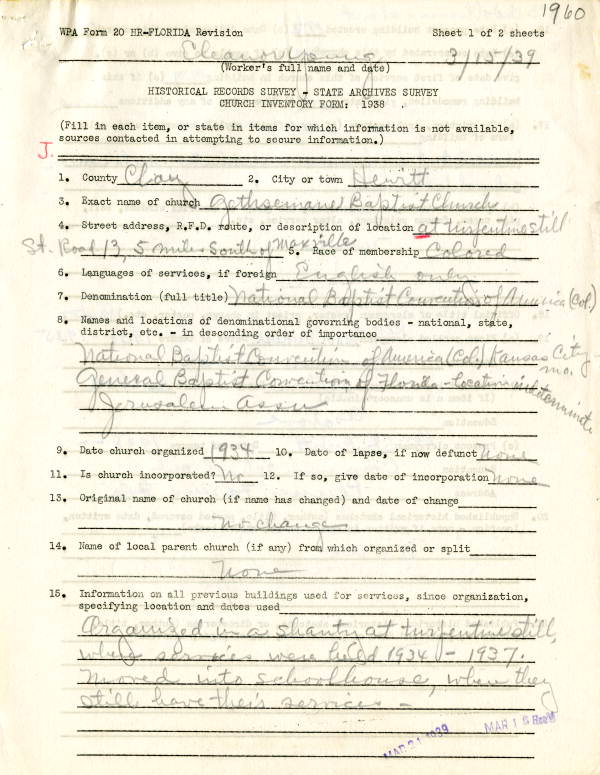 1960
WPA Form 20 HR-FLORIDA Revision Sheet 1 of 2 sheets
Eleanor Young 3/15/39
(Worker's full name and date)
HISTORICAL RECORDS SURVEY - STATE ARCHIVES SURVEY
CHURCH INVENTORY FORM: 1938
(Fill in each item, or state in items for which information is not available,
sources contacted in attempting to secure information.)
J.
1. County Clay 2. City or town Hewitt
3. Exact name of church Gethsemane Baptist Church
4. Street address, R.F.D. route, or description of location at turpentine still
St. Road 13, 5 miles South of Maxville 5. Race of membership Colored
6. Languages of services, if foreign English only
7. Denomination (full title) National Baptist Convention of America (Col.)
8. Names and locations of denominational governing bodies - national, state,
district, etc. - in descending order of importance
National Baptist Convention of America (Col.) Kansas City
Mo.
General Baptist Convention of Florida - location indeterminate
Jerusalem Assn
9. Date church organized 1934 10. Date of lapse, if now defunct None
11. Is church incorporated? No 12. If so, give date of incorporation None
13. Original name of church (if name has changed) and date of change
No change
14. Name of local parent church (if any) from which organized or split
None
15. Information on all previous buildings used for services, since organization,
specifying location and dates used
Organized in a shanty at turpentine still,
where services were held 1934 - 1937.
Moved into schoolhouse, where they
still have their services -
MAR 21 1939 MAR 18